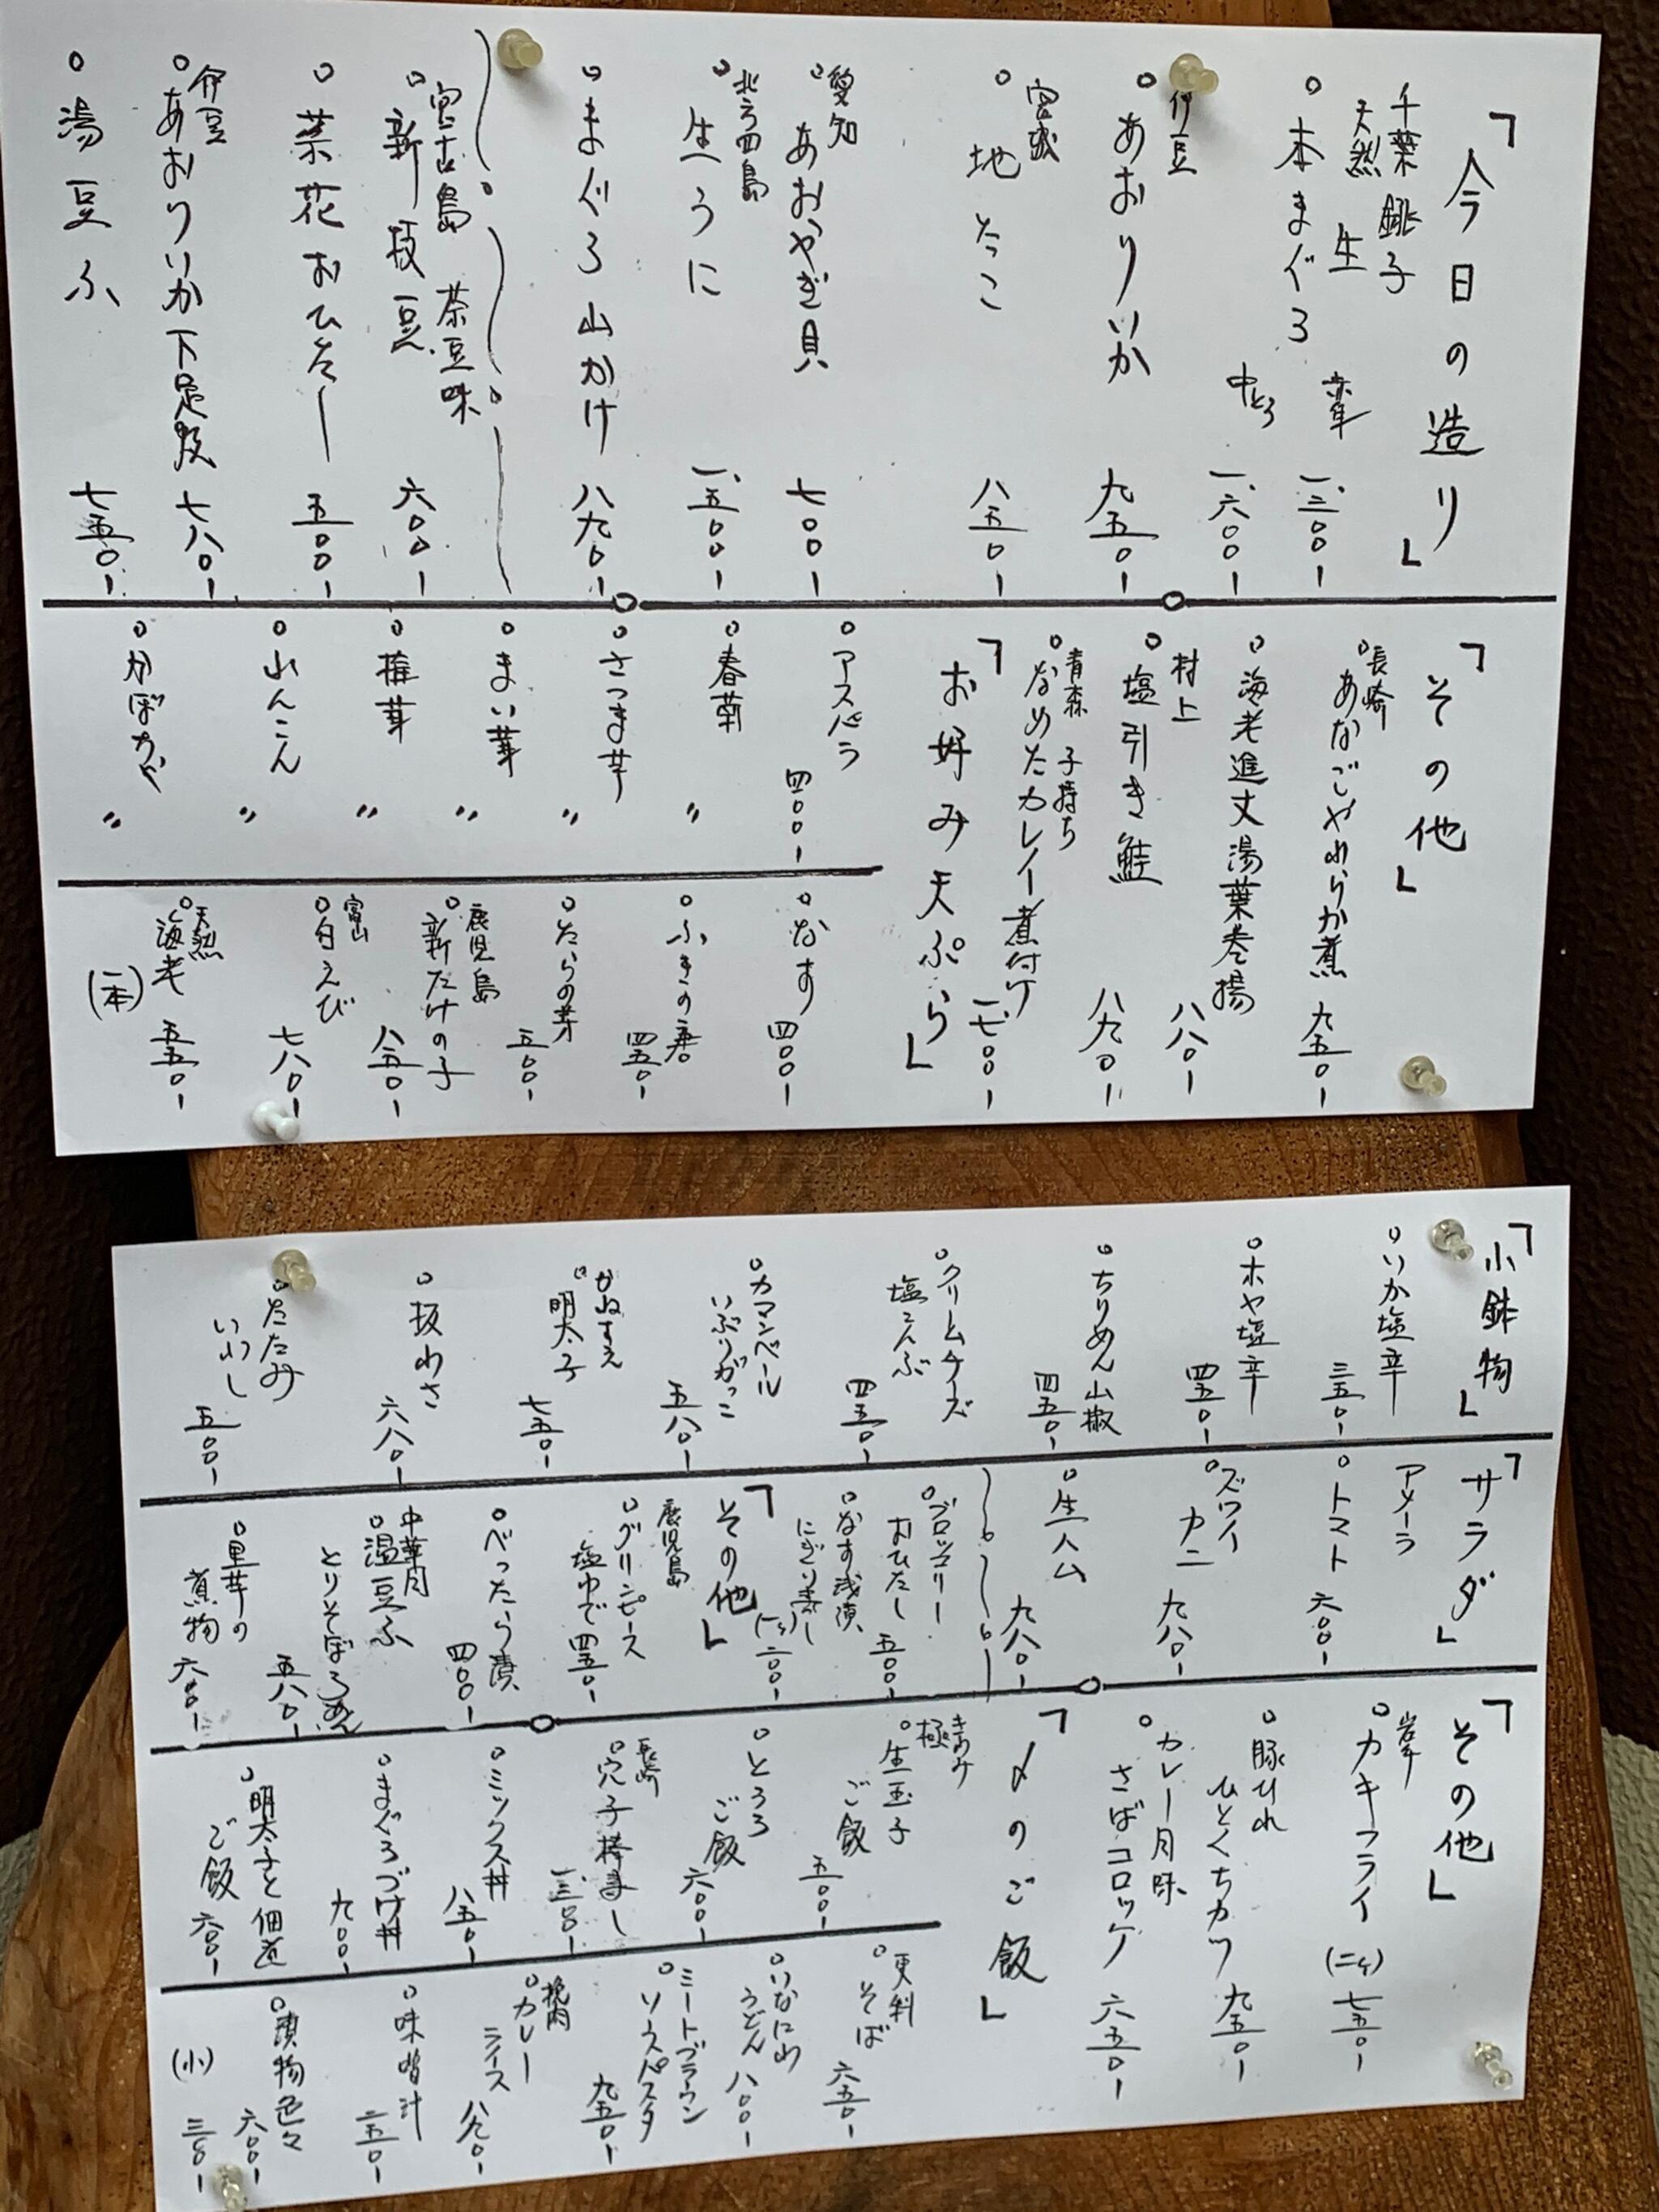 「今日の造り」
千葉 銚子
天然 生
○本まぐろ
赤身 一、三〇〇-
中とろ 一、六〇〇-
伊豆
○あおりいか 九五〇-
宮城
○地たこ 八五〇-
愛知
○あおやぎ貝 七〇〇-
北方四島
○生うに 一、五〇〇-
○まぐろ山かけ 八九〇-
宮古島 茶豆味
○新枝豆 六〇〇-
○菜花おひたし 五〇〇-
伊豆
○あおりいか下足焼 七八〇-
○湯豆ふ 七五〇-
「その他」
長崎
○あなごやわらか煮 九五〇-
○海老進丈湯葉巻揚 八八〇-
村上
○塩引き鮭 八九〇-
青森 子持ち
○なめたカレイ煮付け 一、七〇〇-
「お好み天ぷら」
○アスパラ 四〇〇-
○春菊 〃
○さつま芋 〃
○まい茸 〃
○椎茸 〃
○れんこん 〃
○かぼちゃ 〃
○なす 四〇〇-
○ふきの唐 四五〇-
○たらの芽 五〇〇-
鹿児島
○新たけの子 八五〇-
富山
○白えび 七八〇-
天然
○海老 五五〇-
(一本)
「小鉢物」
○いか塩辛 三五〇-
○ホヤ塩辛 四五〇-
○ちりめん山椒 四五〇-
○クリームチーズ
塩こんぶ 四五〇-
○カマンベール
いぶりがっこ 五八〇-
かねすえ
○明太子 七五〇-
○板わさ 六八〇-
○たたみ
いわし 五〇〇-
「サラダ」
アメーラ
○トマト 六〇〇-
○ズワイ
カニ 九八〇-
○生ハム 九八〇-
○ブロッコリー
おひたし 五〇〇-
○なす浅漬
にぎり寿し
「その他」
鹿児島
○グリンピース
塩ゆで 四五〇-
○べったら漬 四〇〇-
中華風
○温豆ふ
とりそぼろあん 五八〇-
○里芋の
煮物 六〇〇-
「その他」
岩手
○カキフライ (二ケ) 七五〇-
○豚ひれ
ひとくちカツ 九五〇-
○カレー風味
さばコロッケ 六五〇-
「〆のご飯」
きわみ
極
○生玉子
ご飯 五〇〇-
○とろろ
ご飯 六〇〇-
長崎
○穴子棒寿し
○ミックス丼 八五〇-
○まぐろづけ丼 九〇〇-
○明太子と佃煮
ご飯 六〇〇-
更科
○そば 六五〇-
○いなにわ
うどん 八〇〇-
○ミートブラウン
ソースパスタ 九五〇-
挽肉
○カレー
ライス 八九〇-
○味噌汁 二五〇-
○漬物色々 六〇〇-
(小) 三〇〇-